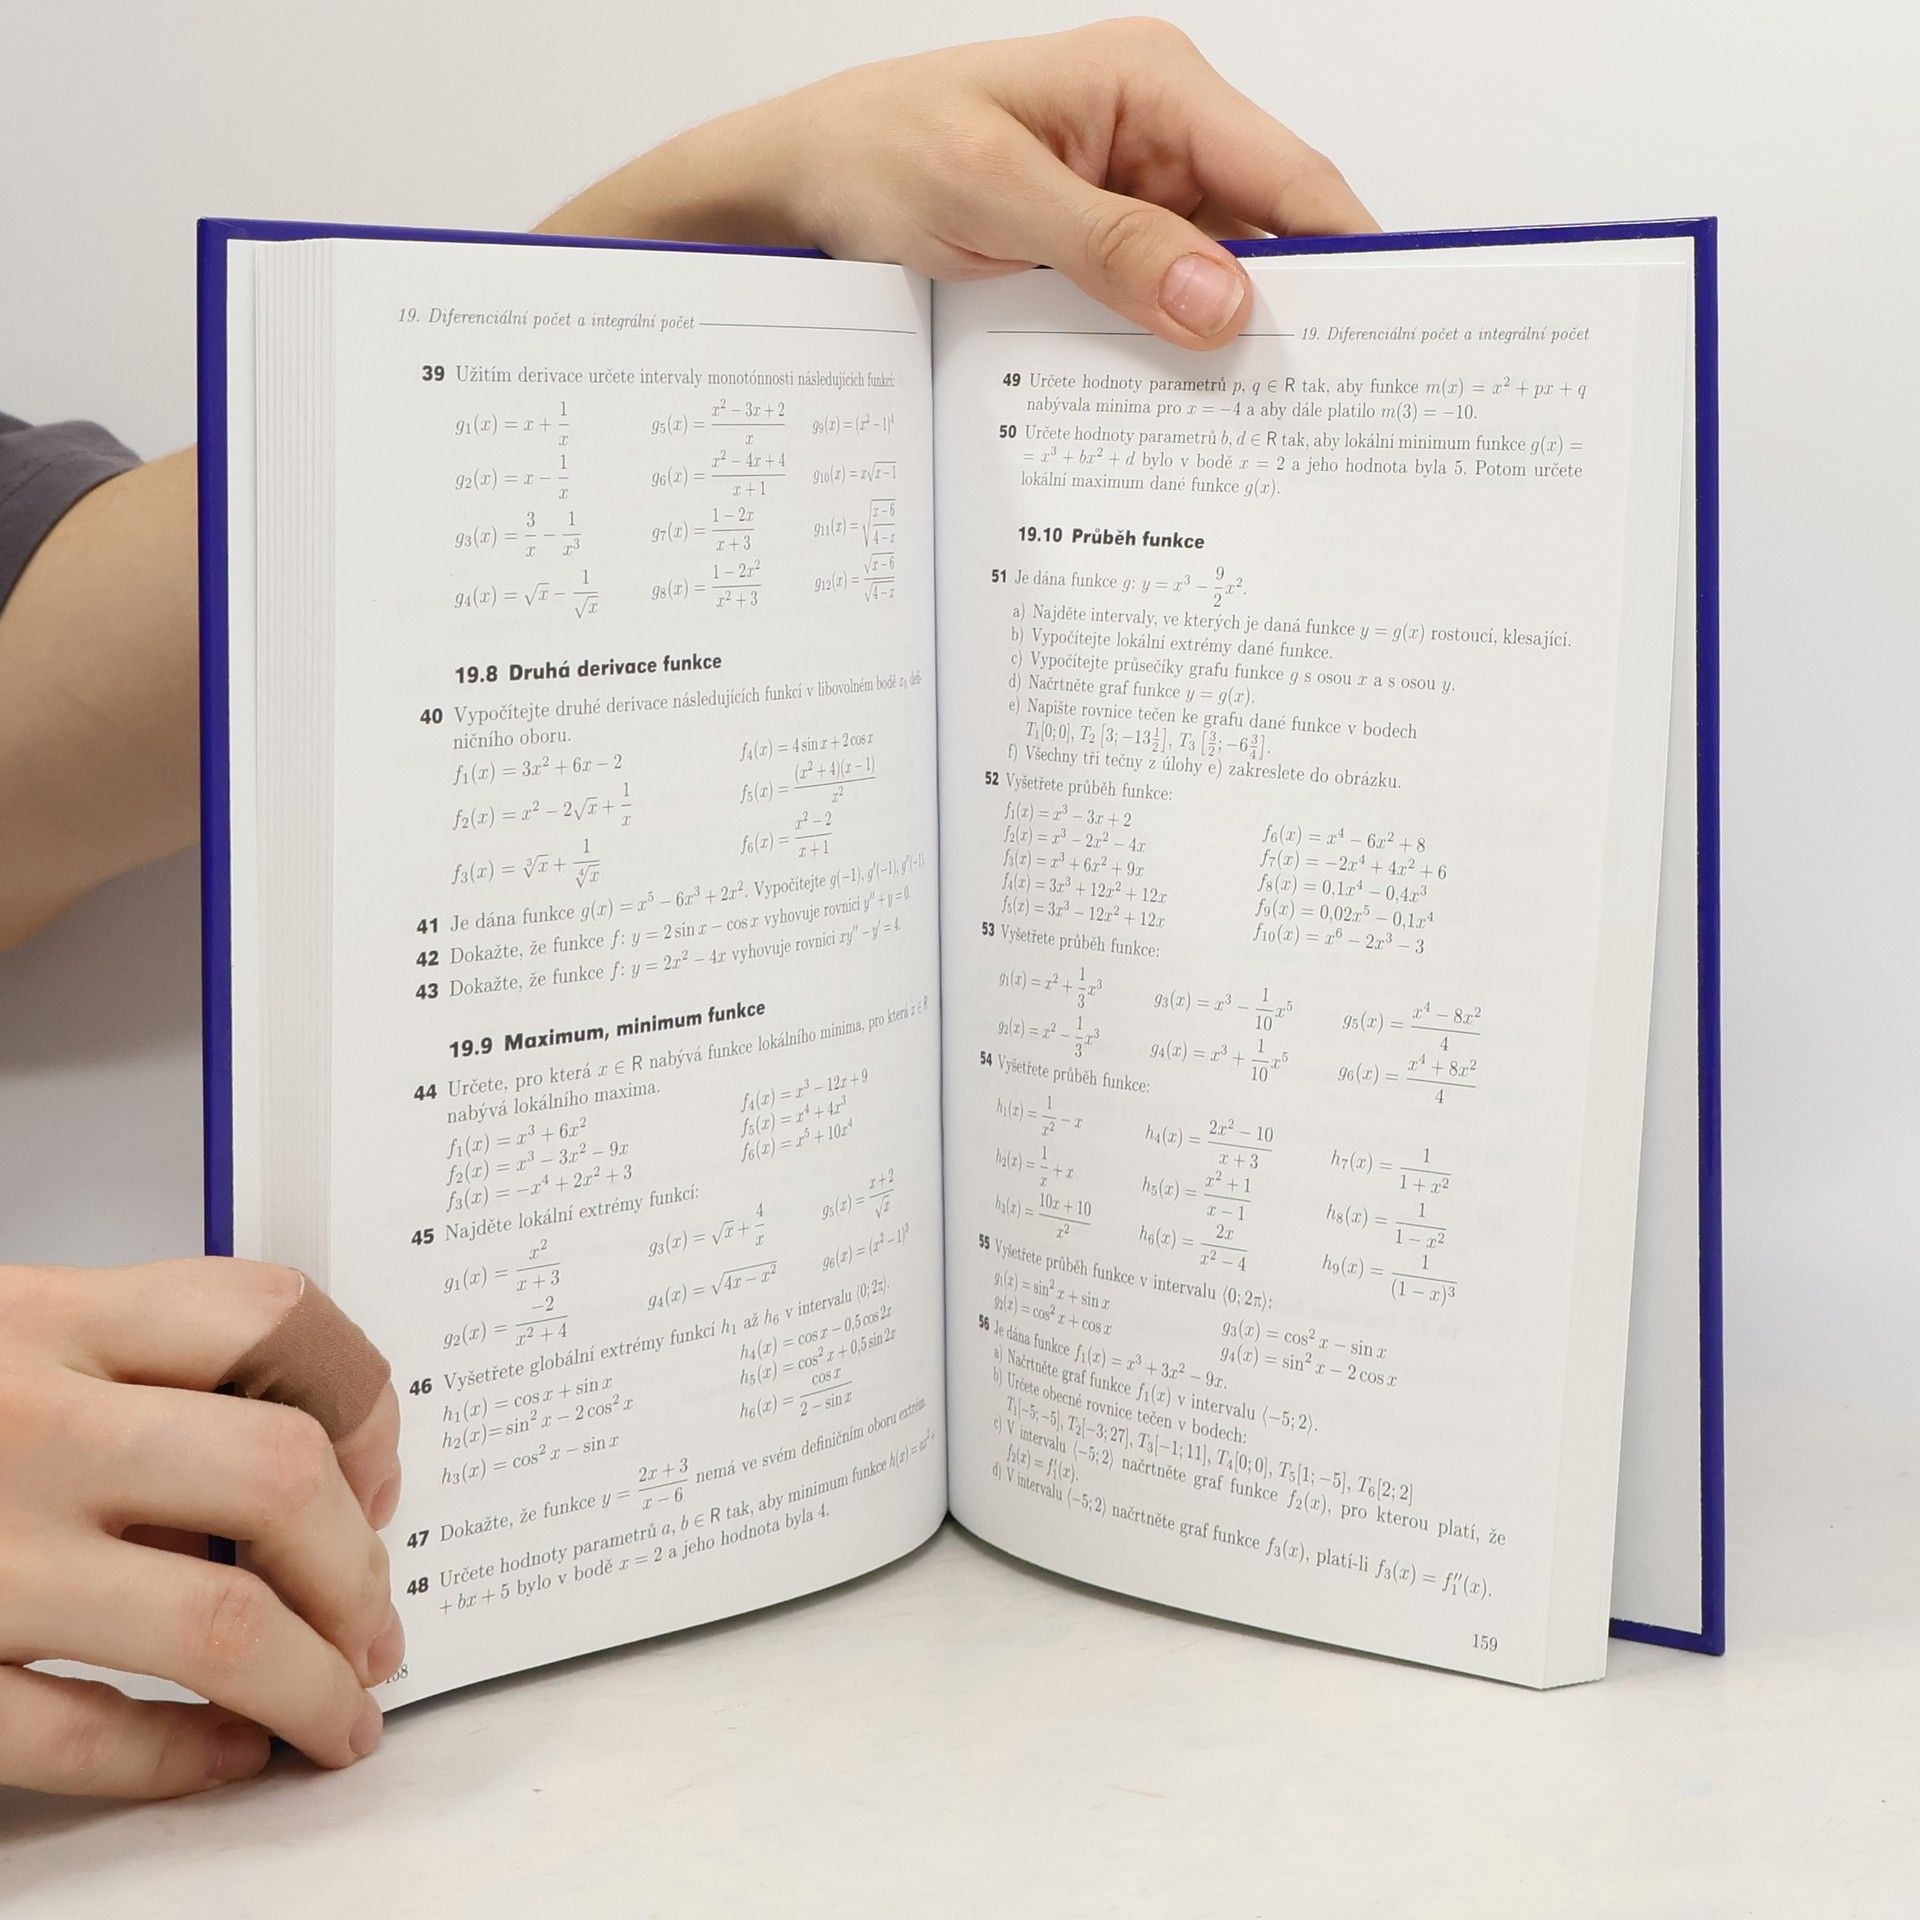 19. Diferenciální počet a integrální počet
39 Užitím derivace určete intervaly monotónnosti následujících funkcí:
g₁(x) = x + 1/x    g₅(x) = (x² − 3x + 2)/x    g₉(x) = (x² − 1)⁴
g₂(x) = x − 1/x    g₆(x) = (x² − 4x + 4)/(x + 1)    g₁₀(x) = x√(x−1)
g₃(x) = 3/x − 1/x³    g₇(x) = (1 − 2x)/(x + 3)    g₁₁(x) = √((x−6)/(4−x))
g₄(x) = √x − 1/√x    g₈(x) = (1 − 2x²)/(x² + 3)    g₁₂(x) = √(x−6)/√(4−x)
19.8 Druhá derivace funkce
40 Vypočítejte druhé derivace následujících funkcí v libovolném bodě x₀ defi-
ničního oboru.
f₁(x) = 3x² + 6x − 2    f₄(x) = 4 sin x + 2 cos x
f₂(x) = x² − 2√x + 1/x    f₅(x) = (x² + 4)(x − 1)/x²
f₃(x) = ∛x + 1/∜x    f₆(x) = (x² − 2)/(x + 1)
41 Je dána funkce g(x) = x⁵ − 6x³ + 2x². Vypočítejte g(−1), g′(−1), g″(−1).
42 Dokažte, že funkce f: y = 2 sin x − cos x vyhovuje rovnici y″ + y = 0.
43 Dokažte, že funkce f: y = 2x² − 4x vyhovuje rovnici xy″ − y′ = 4.
19.9 Maximum, minimum funkce
44 Určete, pro která x ∈ R nabývá funkce lokálního minima, pro která x ∈ R
nabývá lokálního maxima.
f₁(x) = x³ + 6x²    f₄(x) = x³ − 12x + 9
f₂(x) = x³ − 3x² − 9x    f₅(x) = x⁴ + 4x³
f₃(x) = −x⁴ + 2x² + 3    f₆(x) = x⁵ + 10x⁴
45 Najděte lokální extrémy funkcí:
g₁(x) = x²/(x + 3)    g₃(x) = √x + 4/x    g₅(x) = (x + 2)/√x
g₂(x) = −2/(x² + 4)    g₄(x) = √(4x − x²)    g₆(x) = (x² − 1)³
46 Vyšetřete globální extrémy funkcí h₁ až h₆ v intervalu ⟨0; 2π⟩.
h₁(x) = cos x + sin x    h₄(x) = cos x − 0,5 cos 2x
h₂(x) = sin² x − 2 cos² x    h₅(x) = cos² x + 0,5 sin 2x
h₃(x) = cos² x − sin x    h₆(x) = cos x/(2 − sin x)
47 Dokažte, že funkce y = (2x + 3)/(x − 6) nemá ve svém definičním oboru extrém.
48 Určete hodnoty parametrů a, b ∈ R tak, aby minimum funkce h(x) = ax² +
+ bx + 5 bylo v bodě x = 2 a jeho hodnota byla 4.
19. Diferenciální počet a integrální počet
49 Určete hodnoty parametrů p, q ∈ R tak, aby funkce m(x) = x² + px + q
nabývala minima pro x = −4 a aby dále platilo m(3) = −10.
50 Určete hodnoty parametrů b, d ∈ R tak, aby lokální minimum funkce g(x) =
= x³ + bx² + d bylo v bodě x = 2 a jeho hodnota byla 5. Potom určete
lokální maximum dané funkce g(x).
19.10 Průběh funkce
51 Je dána funkce g: y = x³ − 9/2 x².
a) Najděte intervaly, ve kterých je daná funkce y = g(x) rostoucí, klesající.
b) Vypočítejte lokální extrémy dané funkce.
c) Vypočítejte průsečíky grafu funkce g s osou x a s osou y.
d) Načrtněte graf funkce y = g(x).
e) Napište rovnice tečen ke grafu dané funkce v bodech
T₁[0; 0], T₂ [3; −13½], T₃ [3/2; −6¾].
f) Všechny tři tečny z úlohy e) zakreslete do obrázku.
52 Vyšetřete průběh funkce:
f₁(x) = x³ − 3x + 2    f₆(x) = x⁴ − 6x² + 8
f₂(x) = x³ − 2x² − 4x    f₇(x) = −2x⁴ + 4x² + 6
f₃(x) = x³ + 6x² + 9x    f₈(x) = 0,1x⁴ − 0,4x³
f₄(x) = 3x³ + 12x² + 12x    f₉(x) = 0,02x⁵ − 0,1x⁴
f₅(x) = 3x³ − 12x² + 12x    f₁₀(x) = x⁶ − 2x³ − 3
53 Vyšetřete průběh funkce:
g₁(x) = x² + 1/3 x³    g₃(x) = x³ − 1/10 x⁵    g₅(x) = (x⁴ − 8x²)/4
g₂(x) = x² − 1/3 x³    g₄(x) = x³ + 1/10 x⁵    g₆(x) = (x⁴ + 8x²)/4
54 Vyšetřete průběh funkce:
h₁(x) = 1/x² − x    h₄(x) = (2x² − 10)/(x + 3)    h₇(x) = 1/(1 + x²)
h₂(x) = 1/x + x    h₅(x) = (x² + 1)/(x − 1)    h₈(x) = 1/(1 − x²)
h₃(x) = (10x + 10)/x²    h₆(x) = 2x/(x² − 4)    h₉(x) = 1/(1 − x)³
55 Vyšetřete průběh funkce v intervalu ⟨0; 2π⟩:
g₁(x) = sin² x + sin x    g₃(x) = cos² x − sin x
g₂(x) = cos² x + cos x    g₄(x) = sin² x − 2 cos x
56 Je dána funkce f₁(x) = x³ + 3x² − 9x.
a) Načrtněte graf funkce f₁(x) v intervalu ⟨−5; 2⟩.
b) Určete obecné rovnice tečen v bodech:
T₁[−5; −5], T₂[−3; 27], T₃[−1; 11], T₄[0; 0], T₅[1; −5], T₆[2; 2]
c) V intervalu ⟨−5; 2⟩ načrtněte graf funkce f₂(x), pro kterou platí, že
f₂(x) = f₁′(x).
d) V intervalu ⟨−5; 2⟩ načrtněte graf funkce f₃(x), platí-li f₃(x) = f₁″(x).
159